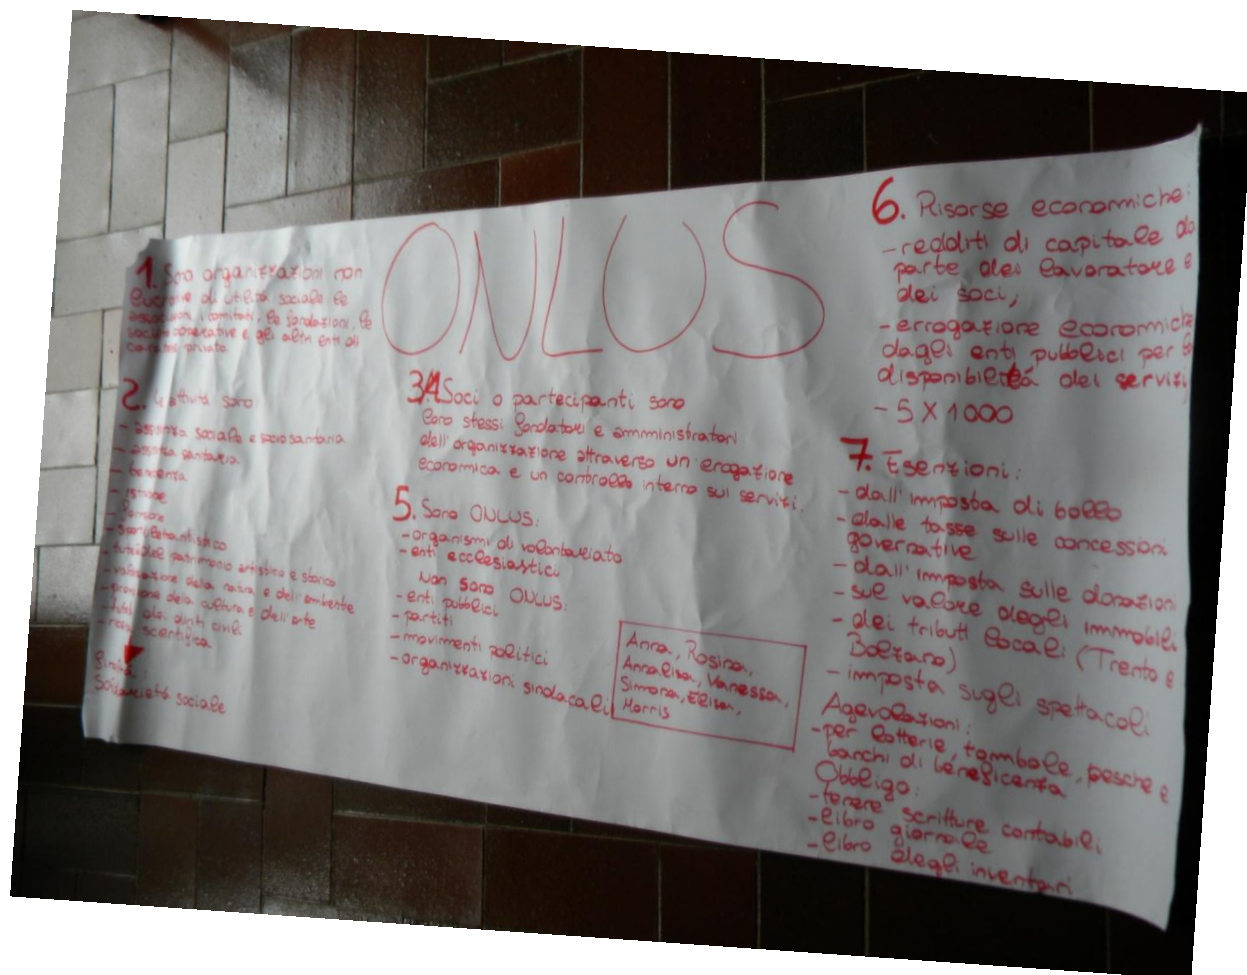 ONLUS
1. Sono organizzazioni non
lucrative di utilità sociale le
associazioni, i comitati, le fondazioni, le
società cooperative e gli altri enti di
carattere privato.
2. Le attività sono:
- assistenza sociale e socio sanitaria
- assistenza sanitaria
- beneficenza
- istruzione
- formazione
- sport dilettantistico
- tutela del patrimonio artistico e storico
- valorizzazione della natura e dell'ambiente
- promozione della cultura e dell'arte
- tutela dei diritti civili
- ricerca scientifica
finalità:
solidarietà sociale
3/4 Soci o partecipanti sono
loro stessi fondatori e amministratori
dell'organizzazione attraverso un'erogazione
economica e un controllo interno sui servizi.
5. Sono ONLUS:
- organismi di volontariato
- enti ecclesiastici
Non sono ONLUS:
- enti pubblici
- partiti
- movimenti politici
- organizzazioni sindacali
Anna, Rosina,
Annalisa, Vanessa,
Simona, Elisa,
Morris
6. Risorse economiche:
- redditi di capitale da
parte dei lavoratore e
dei soci,
- errogazione economiche
dagli enti pubblici per la
disponibilità dei servizi
- 5 X 1000
7. Esenzioni:
- dall'imposta di bollo
- dalle tasse sulle concessioni
governative
- dall'imposta sulle donazioni
- sul valore degli immobili
- dei tributi locali (Trento e
Bolzano)
- imposta sugli spettacoli
Agevolazioni:
- per lotterie, tombole, pesche e
banchi di beneficenza
Obbligo:
- tenere scritture contabili
- libro giornale
- libro degli inventari